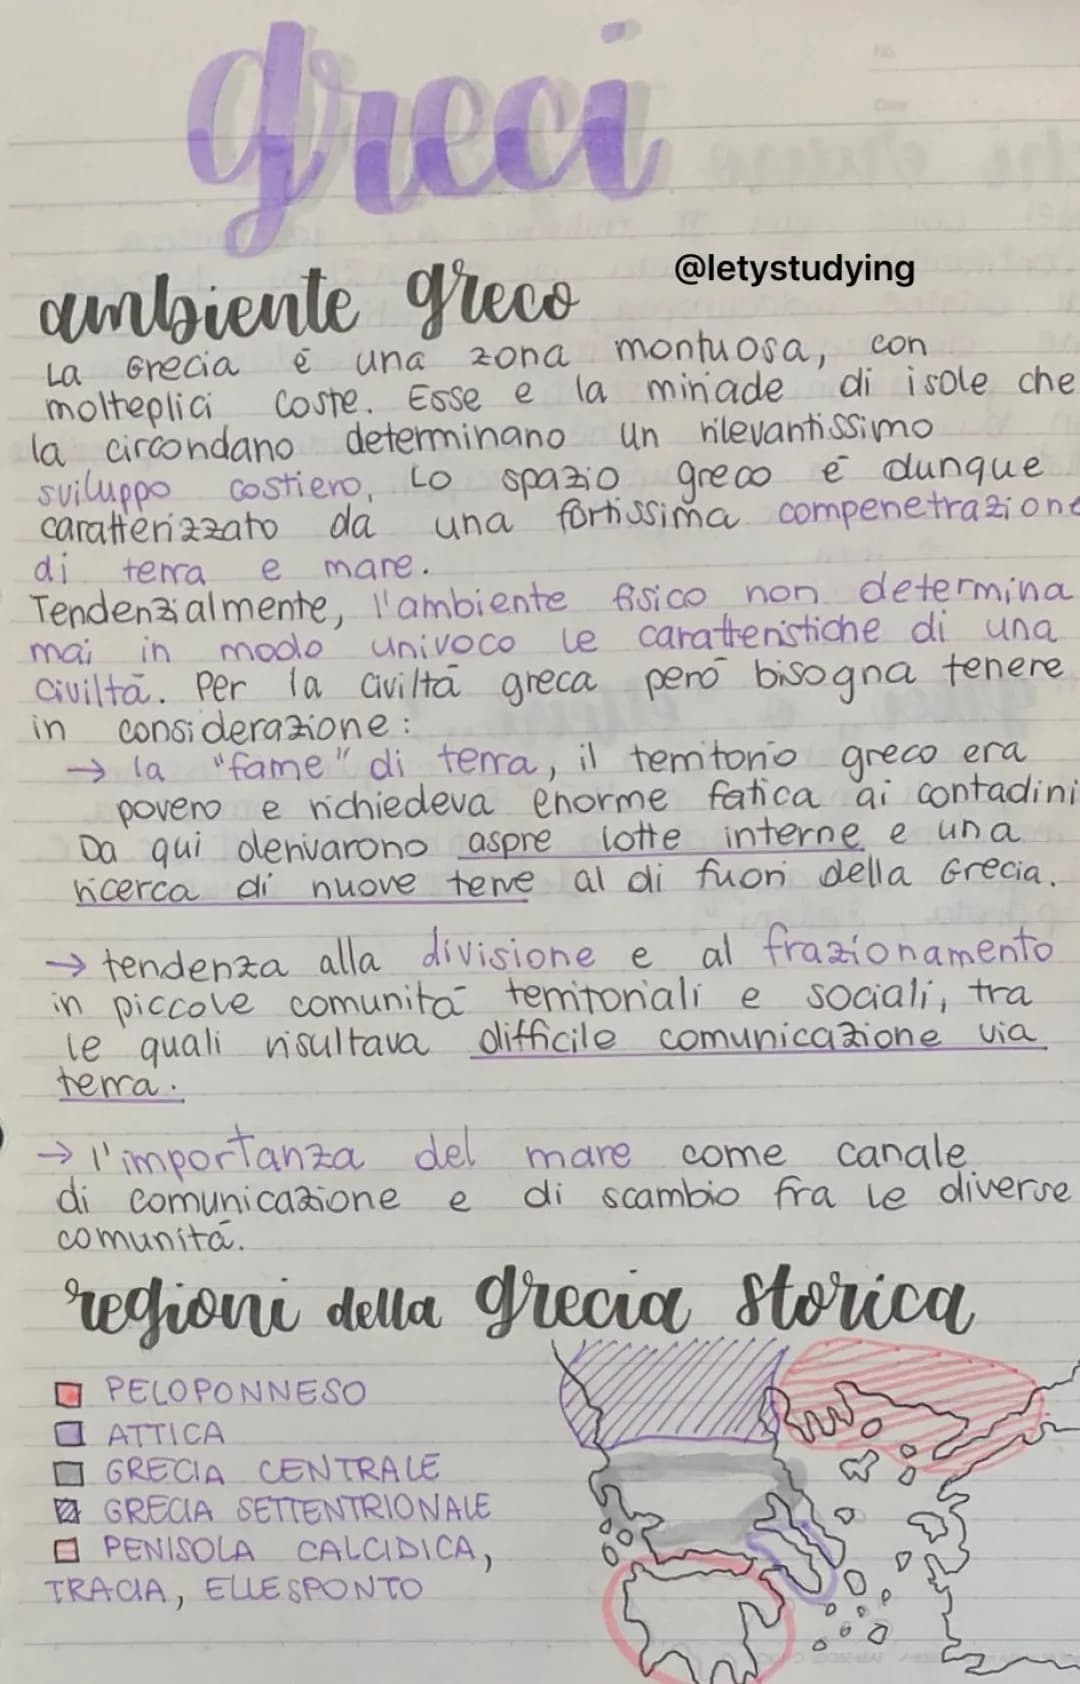 greci
@letystudying
ambiente greco
La Grecia è una zona montuosa, con
molteplici coste. Esse e la miriade di isole che
la circondano determinano un rilevantissimo
sviluppo costiero, Lo spazio greco è dunque
caratterizzato da una fortissima compenetrazione
di terra e mare.
Tendenzialmente, l'ambiente fisico non determina
mai in modo univoco le caratteristiche di una
civiltà. Per la civiltà greca però bisogna tenere
in considerazione:
→ la "fame" di terra, il territorio greco era
povero e richiedeva enorme fatica ai contadini
Da qui derivarono aspre lotte interne e una
ricerca di nuove terre al di fuori della Grecia.
→ tendenza alla divisione e al frazionamento
in piccole comunità territoriali e sociali, tra
le quali risultava difficile comunicazione via
terra.
→ l'importanza del mare come canale
di comunicazione e di scambio fra le diverse
comunità.
regioni della grecia storica
PELOPONNESO
ATTICA
GRECIA CENTRALE
GRECIA SETTENTRIONALE
PENISOLA CALCIDICA,
TRACIA, ELLESPONTO